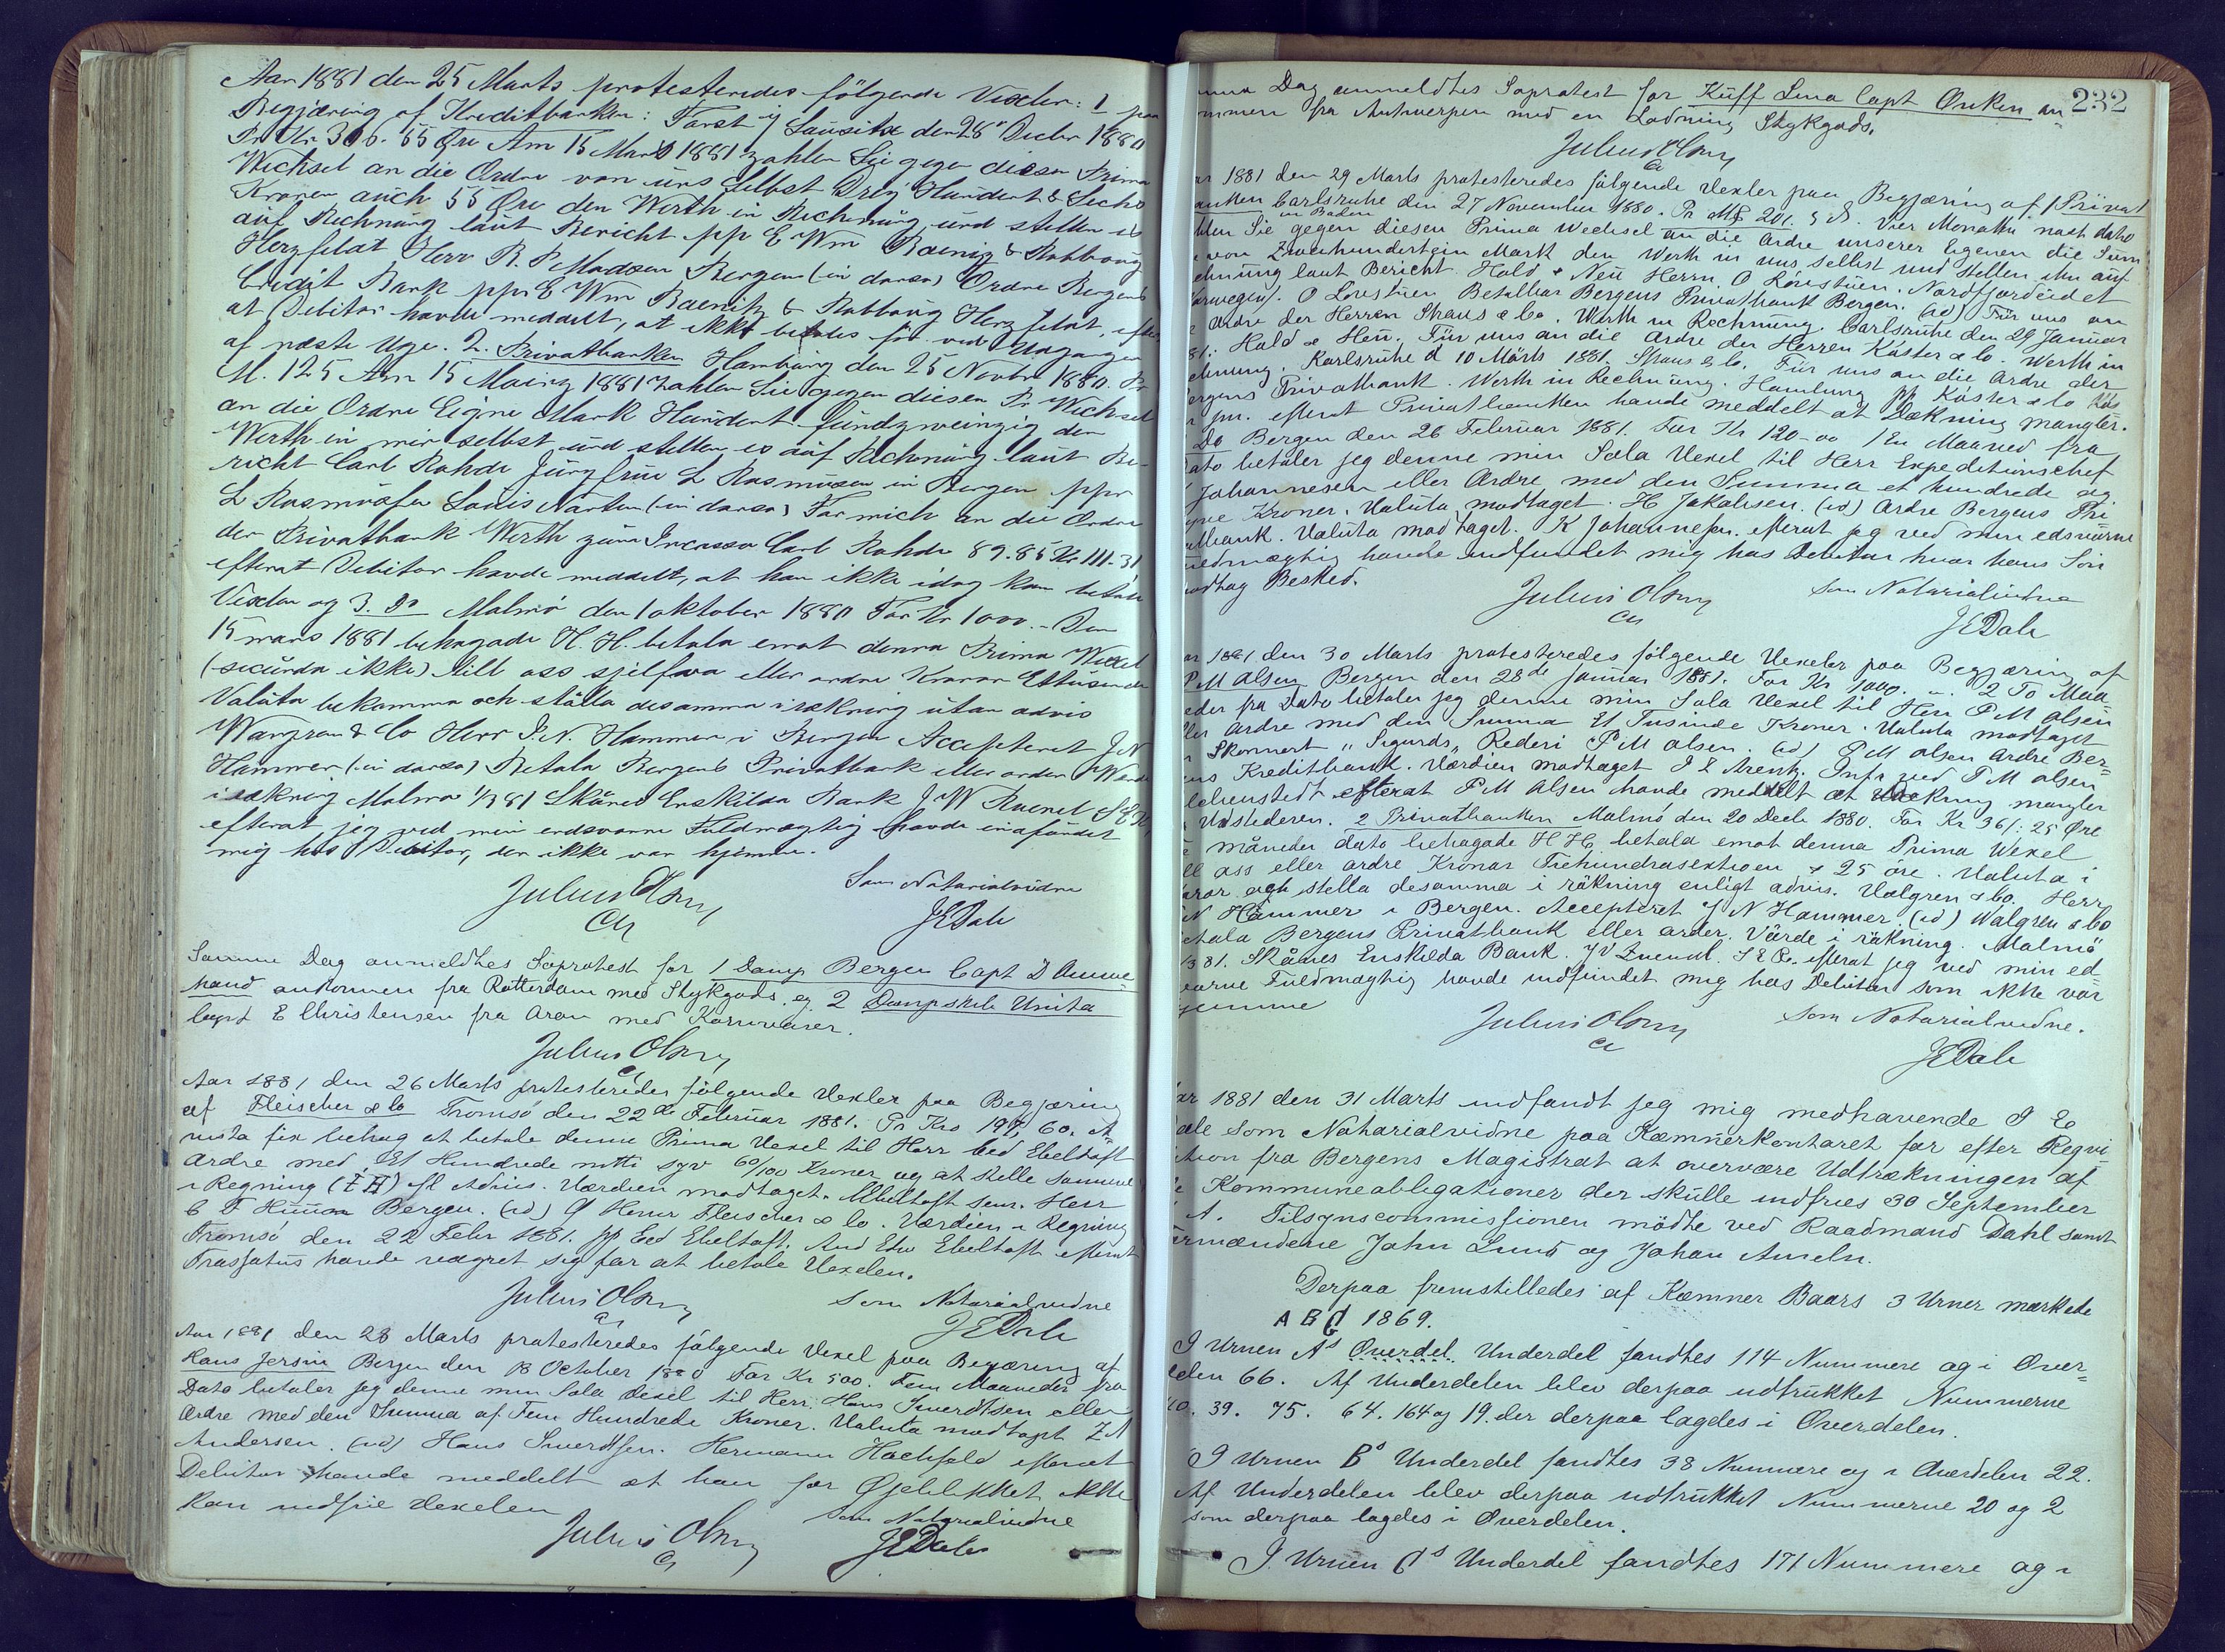 Aar 1881 den 25 Marts protesteredes følgende Vexler: 1 paa
Begjæring af Kreditbanken: Forst i Lausitz den 28' Decbr 1880
Pr. Kr 306. 55 Øre Am 15 Marts 1881 zahlen Sie gegen diesen Prima
Wechsel an die Ordre von uns Selbst Drei Hundert & Sechs
Kronen auch 55 Øre den Werth in Rechnung und stellen es
auf Rechnung laut Bericht pp E Wm Raenitz & Rabbang
Herzfeldt Herr R. P Madsen Bergen (in dorso) Ordre Bergens
Credit Bank ppr E Wm Raenitz & Rabbang Herzfeldt, efter
at Debitor havde meddelt, at ikke betales før ved Udgangen
af næste Uge. 2. Privatbanken Hamburg den 25 Novbr 1880. Pr
M. 125 Am 15 Maerz 1881 zahlen Sie gegen diesen Pr Wechsel
an die Ordre Eigne Mark Hundert fundzweinzig den
Werth in mir selbst und stellen es auf Rechnung laut Be-
richt Carl Rohde Jungfrau L Rasmusen in Bergen ppr
L Rasmussen Louis Narten (in dorso) For mich an die Ordre
der Privatbank Werth zum Incasso Carl Rohde 89.85 Kr 111-31
efterat Debitor havde meddelt, at han ikke idag kan betale
Vexlen og 3. Do Malmø den 1 oktober 1880 For Kr 1000.- Den
15 mars 1881 behagade H. H. betala emot denna Prima Wexel
(secunda ikke) till oss sjelfva eller ordre Kronor Ettusende
Valuta bekomma och ställa desamma i rækning utan advis
& Co Herr J. N. Hammer i Bergen Accepteret J N
Hammer (in dorso) Betala Bergens Privatbank eller order Värde
i rækning Malmø 1/3 81 Skånes Enskilda Bank
efterat jeg ved min edsvorne Fuldmægtig havde indfundet
mig hos Debitor, der ikke var hjemme.
Julius Olsen
Som Notarialvidne
J E Dale
Samme Dag anmeldtes Søprotest for 1 Damp Bergen Capt D
ankommen fra Rotterdam med Stykgods og 2 Dampskib Unita
Capt E Christensen fra Aron med Kornvarer.
Julius Olsen
Aar 1881 den 26 Marts protesteredes følgende Vexler paa Begjæring
af Fleischer & Co Tromsø den 22de Februar 1881. Pr Kro 197, 60. A
vista fix behag at betale denne Prima Vexel til Herr Ced Ebeltoft
Ordre med Et Hundrede nitti syv 60/100 Kroner og at stelle samme
i Regning fl Advis. Værdien modtaget. Ebeltoft senr. Herr
C F Bergen. (id) Herrer Fleischer & Co. Værdien i Regning
Tromsø den 22 Febr 1881. pp Ced Ebeltoft. And Edv Ebeltoft efterat
Trassatus havde vægret sig for at betale Vexelen.
Julius Olsen
Som Notarialvidne
J E Dale
Aar 1881 den 28 Marts protesteredes følgende Vexel paa Begjæring af
Hans Jersin Bergen den 13 October 1880 For Kr 500. Fem Maaneder fra
Dato betaler jeg denne min Sola Vexel til Herr Hans Sivertsen eller
Ordre med den Summa af Fem Hundrede Kroner. Valuta modtaget
Andersen. (id) Hans Sivertsen. Hermann Hochfeld efterat
Debitor havde meddelt at han for Øjeblikket ikke
kan indfrie Vexelen
Som Notarialvidne
Julius Olsen
J E Dale
232
Dag anmeldtes Søprotest for Kuff Lina Capt Onken an
mmen fra Antwerpen med en Ladning Stykgods.
Julius Olsen
1881 den 29 Marts protesteredes følgende Vexler paa Begjæring af 1 Privat
anken Carlsruhe in Baden den 27 November 1880. Pr Mk 201. 5 . Vier Monathe nach dato
hlen Sie gegen diesen Prima Wechsel an die Ordre unserer Eigenen die Sum
e von Zweihundertein Mark den Werth in uns selbst und stellen ihn auf
echnung laut Bericht. Hold & Neu Herrn. O Lönstuen. Nordfjordeidet
orwegen). O Lönstuen Betalbar Bergens Privatbank Bergen. (id) Für uns an
Ordre der Herren Straus & Co. Werth in Rechnung. Carlsruhe den 29 Januar
81. Hold & Neu. Für uns an die Ordre der Herren Köster & Co. Werth in
chnung. Karlsruhe d 10 Märts 1881. Straus & Co. Für uns an die Ordre der
ergens Privatbank. Werth in Rechnung. Hamburg pp Köster & Co
efterat Privatbanken havde meddelt at Dækning mangler.
Do Bergen den 26 Februar 1881. For Kr 120-00 1 En Maaned fra
Dato betaler jeg denne min Sola Vexel til Herr Expeditionschef
Johannesen eller Ordre med den Summa et hundrede og
yve Kroner. Valuta modtaget. H Jakobsen. (id) Ordre Bergens Pri
atbank. Valuta modtaget. K Johannesen. efterat jeg ved min edsvorne
uldmægtig havde indfundet mig hos Debitor hvor hans Søn
modtog Besked.
Julius Olsen
Som Notarialvidne
J E Dale
1881 den 30 Marts protesteredes følgende Vexler paa Begjæring af
P M Olsen Bergen den 28de Januar 1881. For Kr 1000. 2 To Maa-
eder fra Dato betaler jeg denne min Sola Vexel til Herr P M Olsen
ller Ordre med den Summa Et Tusinde Kroner. Valuta modtaget
Skonnert "Sigurds" Rederi P M Olsen. (id) P M Olsen Ordre Ber-
ens Kreditbank. Værdien modtaget J E Arentz. Infr ved P M Olsen
efterat P M Olsen havde meddelt at Dækning mangler
Udstederen. 2 Privatbanken Malmö den 20 Decbr 1880. For Kr 361: 25 Øre
måneder dato behagade H H. betala emot denna Prima Wexel
ll oss eller ordre Kronor Trehundrasextioen & 25 öre. Valuta i
varor och stella desamma i räkning enligt advis. Walgren & Co. Herr
N Hammer i Bergen. Accepteret J N Hammer. (id) Walgren & Co
etala Bergens Privatbank eller order. Värde i räkning. Malmö
1/3 81. Skånes Enskilda Bank. efterat jeg ved min ed
svorne Fuldmægtig havde indfundet mig hos Debitor som ikke var
hjemme
Julius Olsen
Som Notarialvidne.
J E Dale
1881 den 31 Marts indfandt jeg mig medhavende J E
ale som Notarialvidne paa Kæmnerkontoret for efter Reqvi-
ition fra Bergens Magistrat at overvære Udtrækningen af
Kommuneobligationer der skulle indfries 30 September
A. Tilsynscommissionen mødte ved Raadmand Dahl samt
ormændene John Lund og Johan Ameln.
Derpaa fremstilledes af Kæmner Baars 3 Urner mærkede
A B C 1869.
I Urnen As Overdel Underdel fandtes 114 Nummere og i Over-
delen 66. Af Underdelen blev derpaa udtrukket Nummerne
10. 39. 75. 64. 164 og 19. der derpaa lagdes i Overdelen.
I Urnen Bs Underdel fandtes 38 Nummere og i Overdelen 22.
Af Underdelen blev derpaa udtrukket Nummerne 20 og 2
som derpaa lagdes i Overdelen.
I Urnen Cs Underdel fandtes 171 Nummere og i